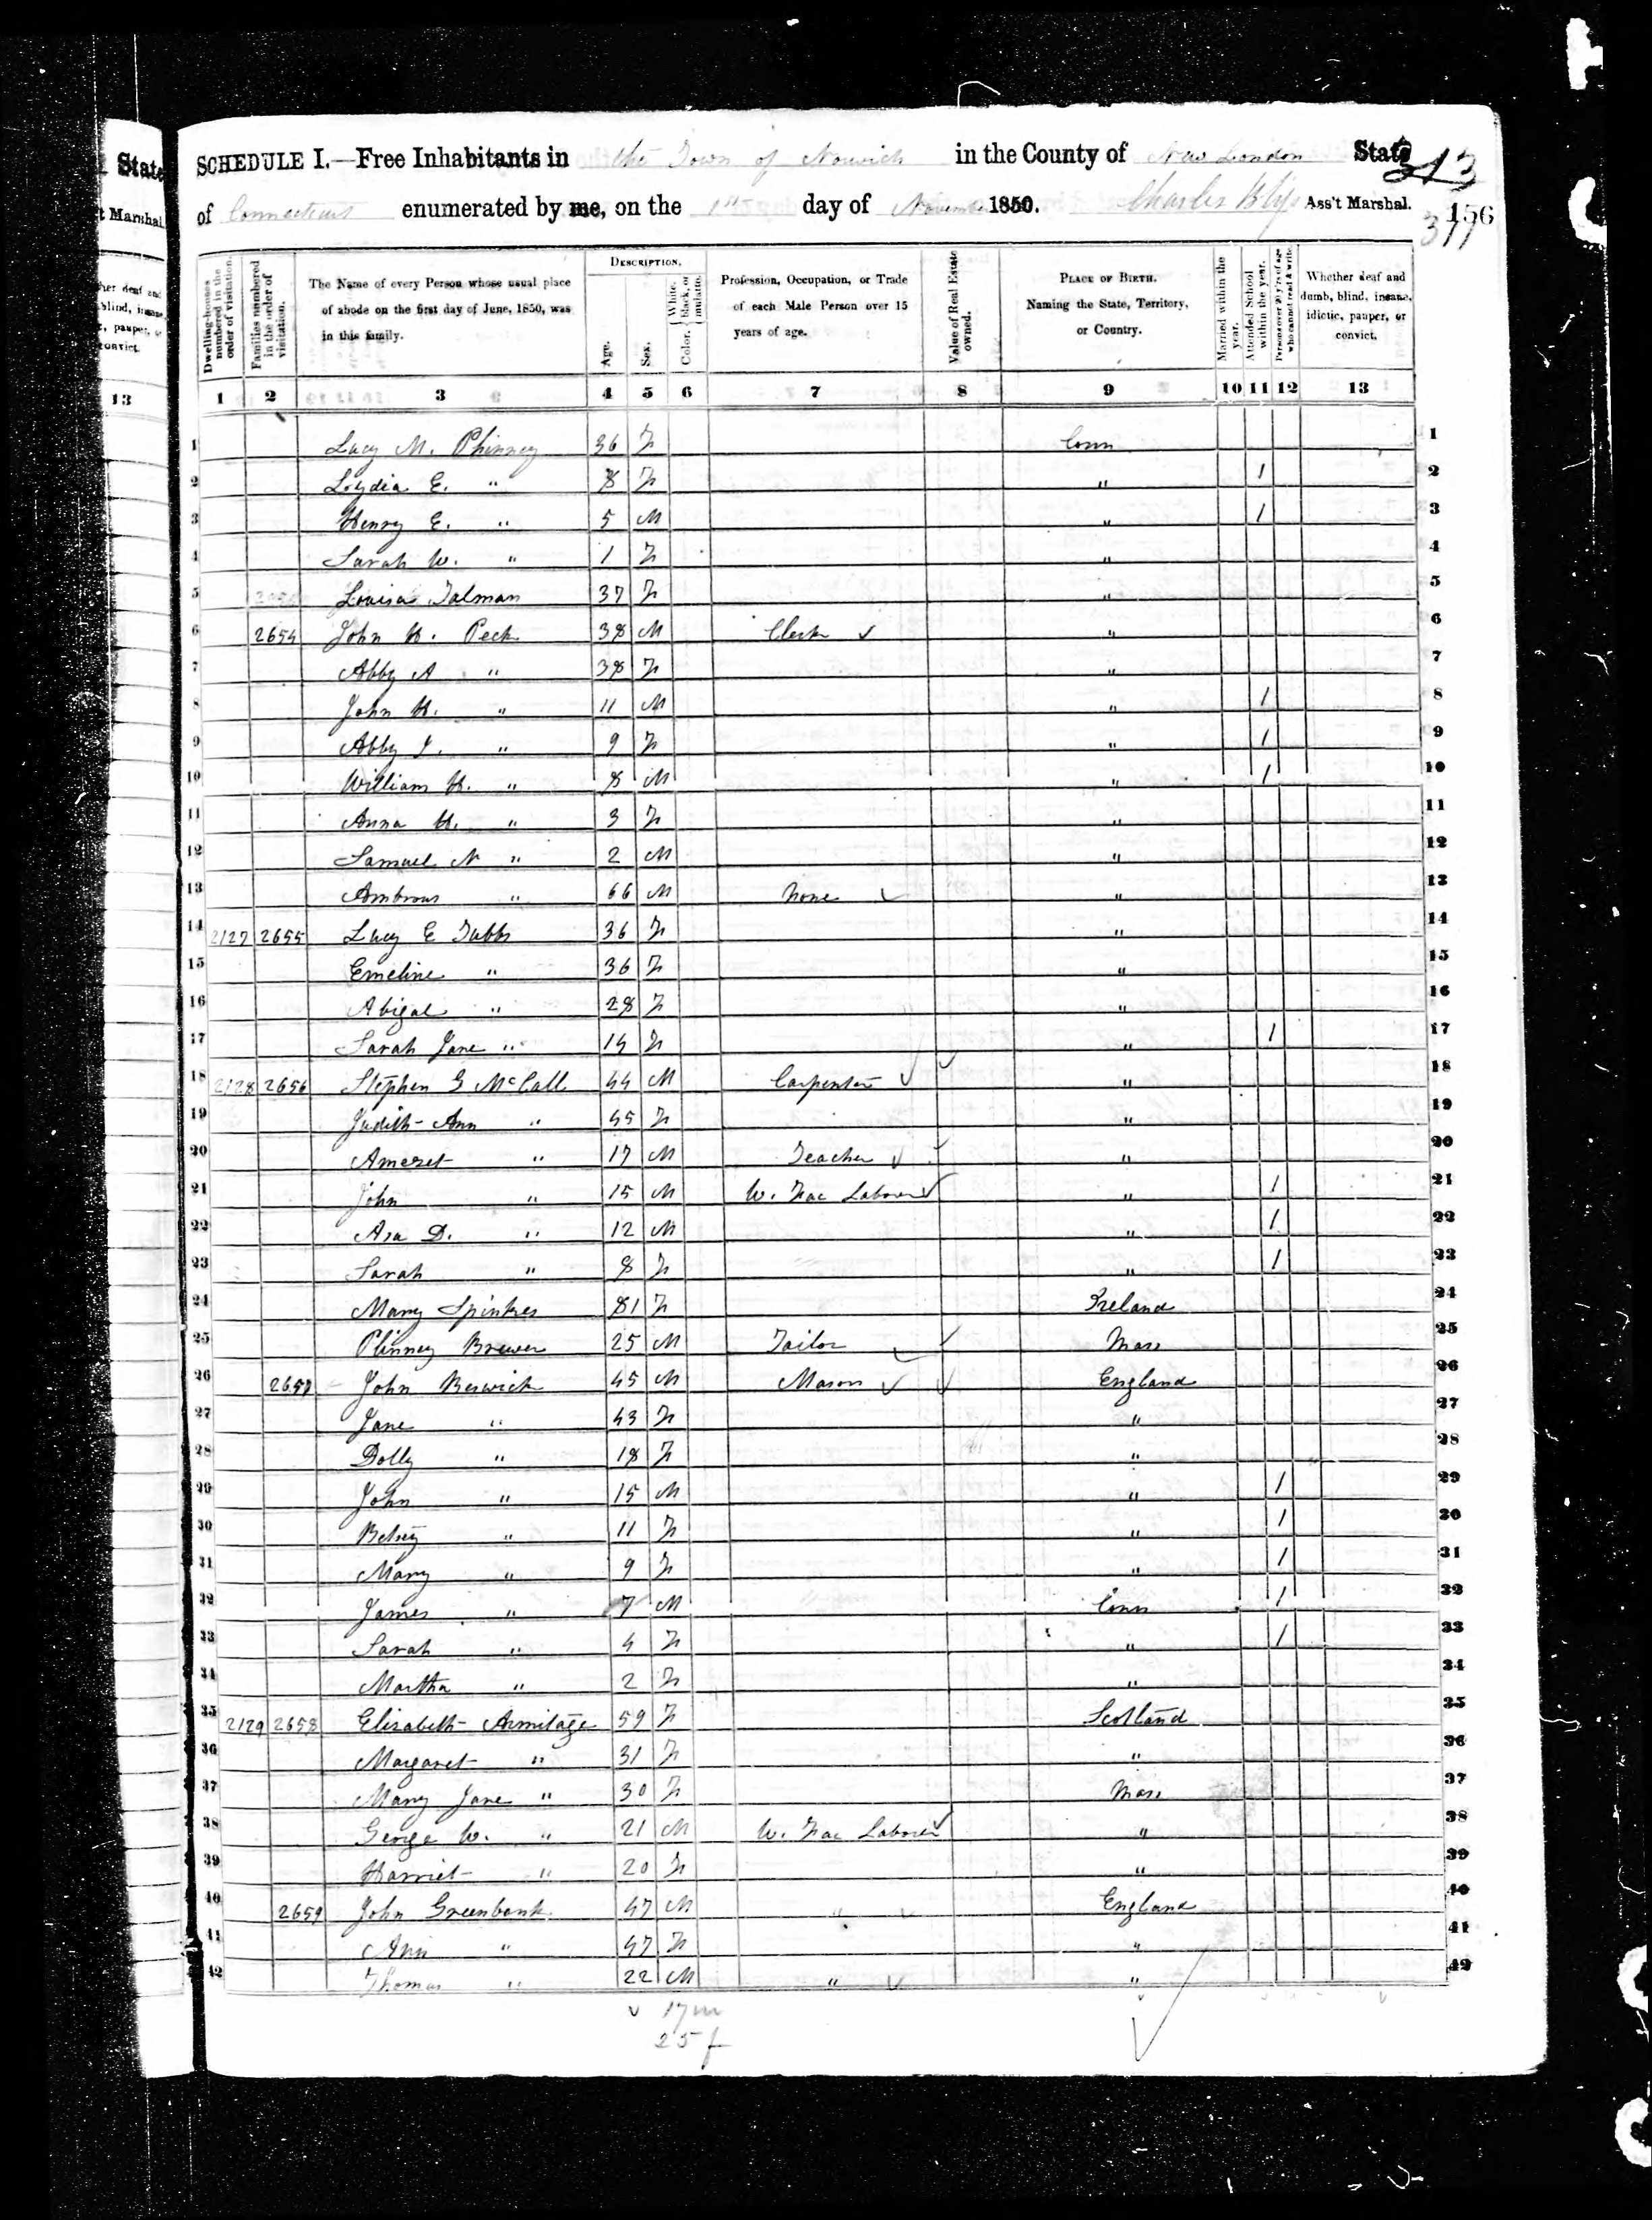 State
t Marshal.
her deaf and
blind, insane,
c, pauper, or
convict.
13
SCHEDULE I.—Free Inhabitants in the Town of Norwich in the County of New London State 313
of Connecticut enumerated by me, on the 1st day of November 1850. Charles Bliss Ass't Marshal. 156
311
Dwelling-houses numbered in the order of visitation.
Families numbered in the order of visitation.
The Name of every Person whose usual place of abode on the first day of June, 1850, was in this family.
Description.
Age.
Sex.
Color, White, black, or mulatto.
Profession, Occupation, or Trade of each Male Person over 15 years of age.
Value of Real Estate owned.
Place of Birth. Naming the State, Territory, or Country.
Married within the year.
Attended School within the year.
Persons over 20 y'rs of age who cannot read & write.
Whether deaf and dumb, blind, insane, idiotic, pauper, or convict.
1 2 3 4 5 6 7 8 9 10 11 12 13
1 Lucy M. Phinney 36 F Conn 1
2 Lydia E. " 8 F " 1 2
3 Henry E. " 5 M " 1 3
4 Sarah W. " 1 F " 4
5 Louisa Talman 37 F " 5
6 2654 John H. Peck 38 M Clerk ✓ " 6
7 Abby A " 38 F " 7
8 John H. " 11 M " 1 8
9 Abby J. " 9 F " 1 9
10 William H. " 8 M " 1 10
11 Anna H. " 3 F " 11
12 Samuel N " 2 M " 12
13 Ambrous " 66 M None ✓ " 13
14 2127 2655 Lucy E Tubbs 36 F " 14
15 Emeline " 36 F " 15
16 Abigal " 28 F " 16
17 Sarah Jane " 14 F " 1 17
18 2128 2656 Stephen G McCall 44 M Carpenter ✓ " 18
19 Judith Ann " 45 F " 19
20 Amezet " 17 M Teacher ✓ " 20
21 John " 15 M W. Fac Laborer ✓ " 1 21
22 Asa D. " 12 M " 1 22
23 Sarah " 8 F " 1 23
24 Mary Spinkes 81 F Ireland 24
25 Phinney Brewer 25 M Tailor ✓ Mass 25
26 2657 John Beswick 45 M Mason ✓ England 26
27 Jane " 43 F " 27
28 Dolly " 18 F " 28
29 John " 15 M " 1 29
30 Betsey " 11 F " 1 30
31 Mary " 9 F " 1 31
32 James " 7 M Conn 1 32
33 Sarah " 4 F " 1 33
34 Martha " 2 F " 34
35 2129 2658 Elizabeth Armitage 59 F Scotland 35
36 Margaret " 31 F " 36
37 Mary Jane " 30 F Mass 37
38 George W. " 21 M W. Fac Laborer ✓ " 38
39 Harriet " 20 F " 39
40 2659 John Greenbank 47 M " England 40
41 Ann " 47 F " 41
42 Thomas " 22 M " ✓ " 42
✓ 17 m
25 f